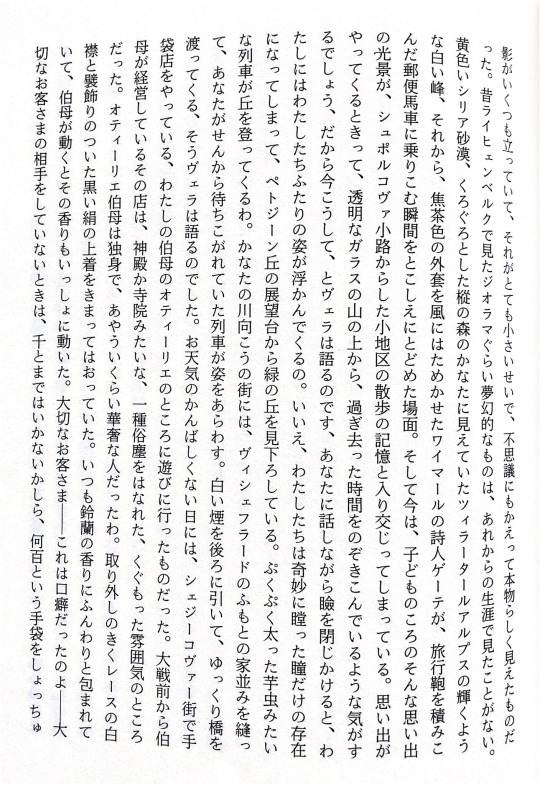 影がいくつも立っていて、それがとても小さいせいで、不思議にもかえって本物らしく見えたものだ
った。昔ライヒェンベルクで見たジオラマぐらい夢幻的なものは、あれからの生涯で見たことがない。
黄色いシリア砂漠、くろぐろとした樅の森のかなたに見えていたツィラータールアルプスの輝くよう
な白い峰、それから、焦茶色の外套を風にはためかせたワイマールの詩人ゲーテが、旅行鞄を積みこ
んだ郵便馬車に乗りこむ瞬間をとこしえにとどめた場面。そして今は、子どものころのそんな思い出
の光景が、シュポルコヴァ小路からした小地区の散歩の記憶と入り交じってしまっている。思い出が
やってくるときって、透明なガラスの山の上から、過ぎ去った時間をのぞきこんでいるような気がす
るでしょう、だから今こうして、とヴェラは語るのです、あなたに話しながら瞼を閉じかけると、わ
たしにはわたしたちふたりの姿が浮かんでくるの。いいえ、わたしたちは奇妙に瞠った瞳だけの存在
になってしまって、ペトジーン丘の展望台から緑の丘を見下ろしている。ぷくぷく太った芋虫みたい
な列車が丘を登ってくるわ。かなたの川向こうの街には、ヴィシェフラードのふもとの家並みを縫っ
て、あなたがせんから待ちこがれていた列車が姿をあらわす。白い煙を後ろに引いて、ゆっくり橋を
渡ってくる、そうヴェラは語るのでした。お天気のかんばしくない日には、シェジーコヴァー街で手
袋店をやっている、わたしの伯母のオティーリエのところに遊びに行ったものだった。大戦前から伯
母が経営しているその店は、神殿か寺院みたいな、一種俗塵をはなれた、くぐもった雰囲気のところ
だった。オティーリエ伯母は独身で、あやういくらい華奢な人だったわ。取り外しのきくレースの白
襟と襞飾りのついた黒い絹の上着をきまってはおっていた。いつも鈴蘭の香りにふんわりと包まれて
いて、伯母が動くとその香りもいっしょに動いた。大切なお客さま――これは口癖だったのよ――大
切なお客さまの相手をしていないときは、千とまではいかないかしら、何百という手袋をしょっちゅ